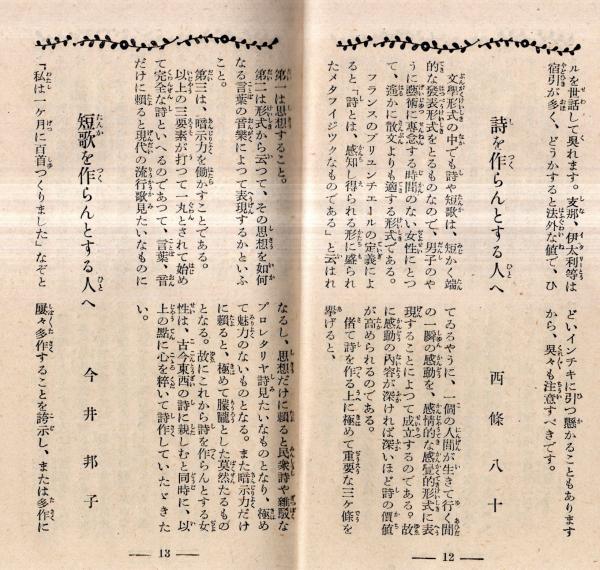 ルを世話して吳れます。支那、伊太利等は
宿引が多く、どうかすると法外な値で、ひ
どいインチキに引つ懸かることもあります
から、吳々も注意すべきです。
詩を作らんとする人へ
西條八十
文學形式の中でも詩や短歌は、短かく端
的な發表形式をとるものなので、男子のや
うに藝術に專念する時間のない女性にとつ
て、遙かに散文よりも適する形式である。
フランスのブリユンチエールの定義によ
ると「詩とは、感知し得られる形に盛られ
たメタフイジツクなものである」と云はれ
てゐるやうに、一個の人間が生きて行く間
の一瞬の感動を、感情的な感覺的形式に表
現することによつて成立するのである。故
に感動の內容が深ければ深いほど詩の價値
が高められるのである。
偖て詩を作る上に極めて重要な三ケ條を
擧げると、
— 12 —
第一は思想すること。
第二は形式から云つて、その思想を如何
なる言葉の音樂によつて表現するかといふ
こと。
第三は、暗示力を働かすことである。
以上の三要素が打つて一丸とされて始め
て完全な詩といへるのであつて、言葉、音
だけに賴ると現代の流行歌見たいなものに
なるし、思想だけに賴ると民衆詩や雜駁な
プロレタリヤ詩見たいなものとなり、極め
て魅力のないものとなる。また暗示力だけ
に賴ると、極めて朦朧とした莫然たるもの
となる。故にこれから詩を作らんとする女
性は、古今東西の詩に親しむと同時に、以
上の點に心を粹いて詩作していたゞきた
い。
短歌を作らんとする人へ
今井邦子
「私は一ケ月に二百首つくりました」なぞと
屢々多作することを誇示し、または多作に
— 13 —